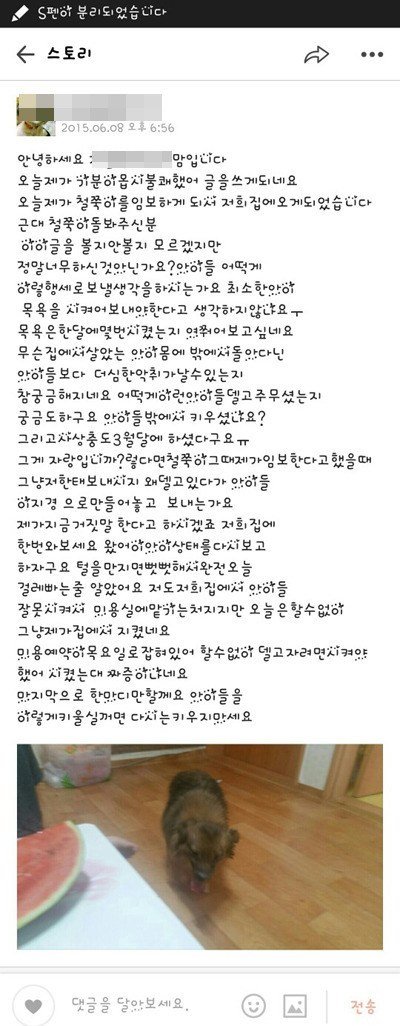 S펜이 분리되었습니다
스토리
2015.06.08 오후 6:56
안녕하세요 맘입니다
오늘제가 기분이몹시불쾌했어 글을쓰게되네요
오늘제가 철쭉이를임보하게 되서 저희집에오게되었습니다
근대 철쭉이돌봐주신분
이이글을 볼지안볼지 모르겠지만
정말너무하신것아닌가요?아이들 어떻게
이렇행세로보낼생각을하시는가요 최소한아이
목욕을 시켜어보내야한다고 생각하지않나요ㅜ
목욕은한달에몇번시켰는지 여쭤어보고싶네요
무슨집에서살았는 아이몸에 밖에서돌아다닌
아이들보다 더심한악취가날수있는지
참궁금해지네요 어떻게이런아이들델고주무셨는지
궁금도하구요 아이들밖에서 키우셨나요?
그리고사상충도3월달에 하셨다구요ㅠ
그게 자랑입니까?렇다면철쭉이그때제가임보한다고했을때
그냥저한태보내시지 왜델고있다가 아이들
이지경 으로만들어놓고 보내는가요
제가지금거짓말 한다고 하시겠죠 저희집에
한번와보세요 왔어이아이상태를다시보고
하자구요 털을만지면뻣뻣해서완전오늘
걸레빠는줄 알았어요 저도저희집에서 아이들
잘못시켜서 미용실에맡기는처지지만 오늘은할수없이
그냥제가집에서 시켰네요
미용예약이목요일로잡혀있어 할수없이 델고자려면시켜야
했어 시켰는대 짜증이나네요
마지막으로 한마디만할께요 아이들을
이렇게키울실꺼면 다시는키우지만세요
댓글을 달아보세요.
전송